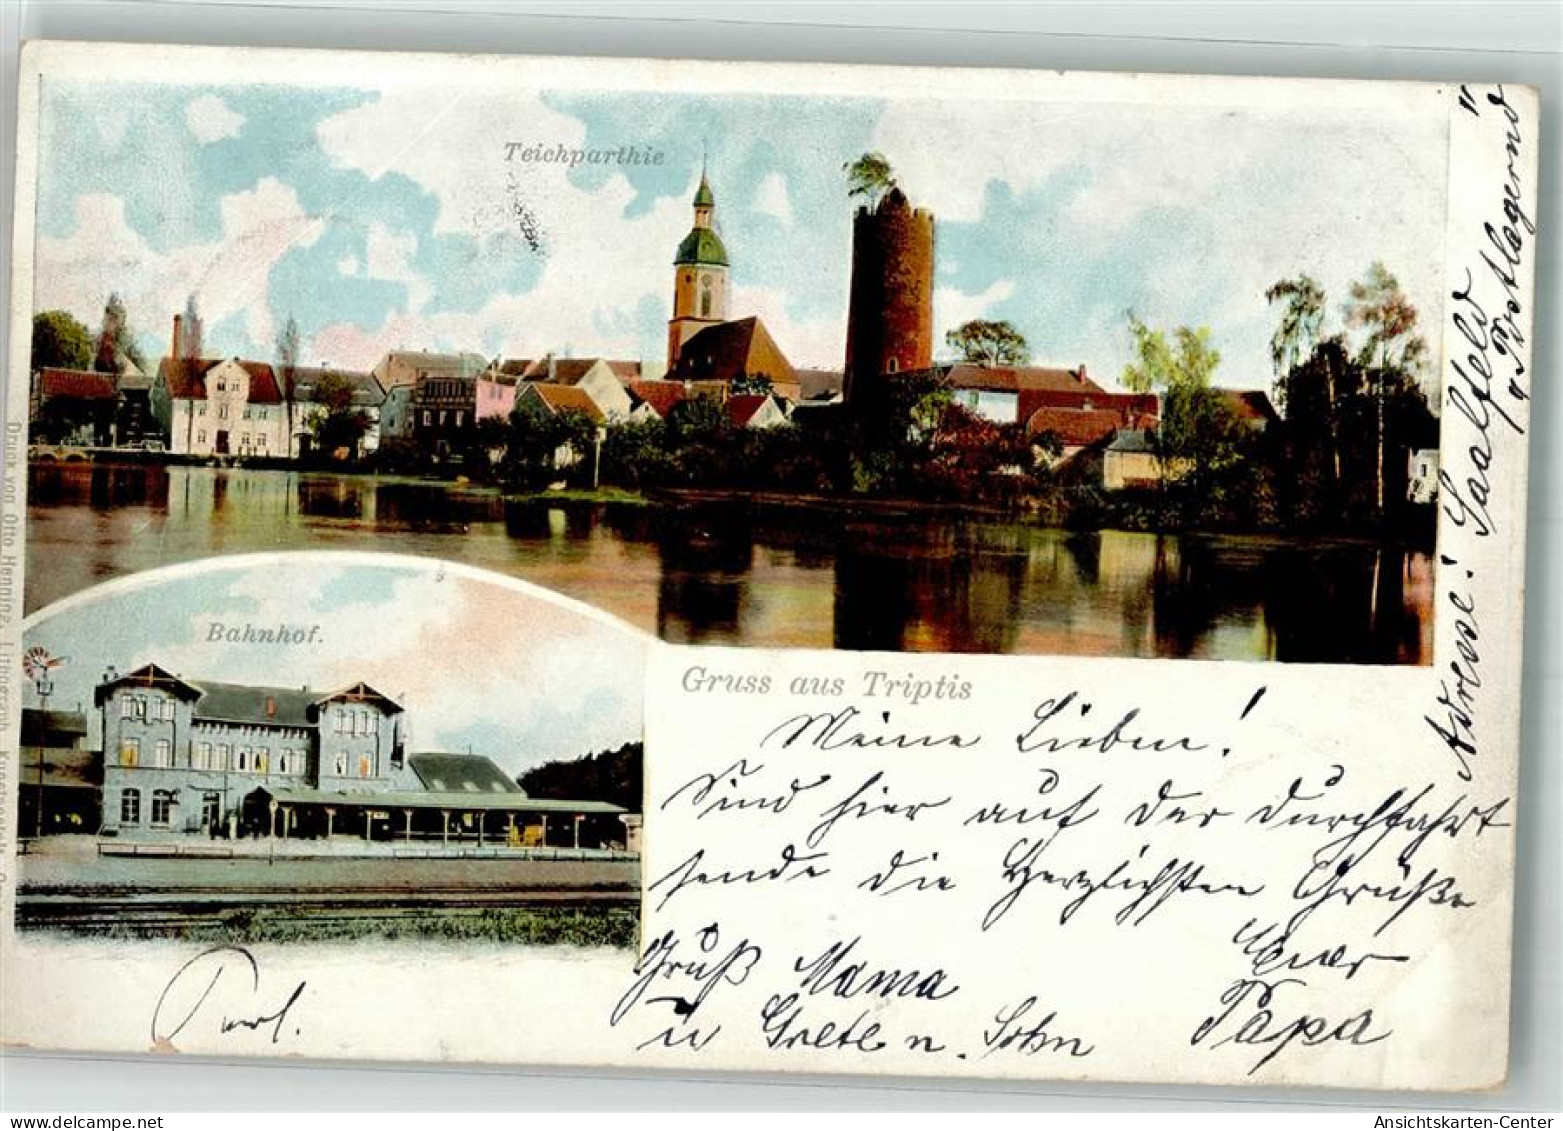 Teichparthie
Bahnhof.
Gruss aus Triptis
Meine Lieben!
Sind hier auf der Durchfahrt
sende die Herzlichsten Grüße
Euer
Papa
Gruß Mama
u Gretel u. Sohn
Adresse: Saalfeld
"Postlagernd"
Druck von Otto Henning, Lungerich, Kunstanstalt
www.delcampe.net
Ansichtskarten-Center